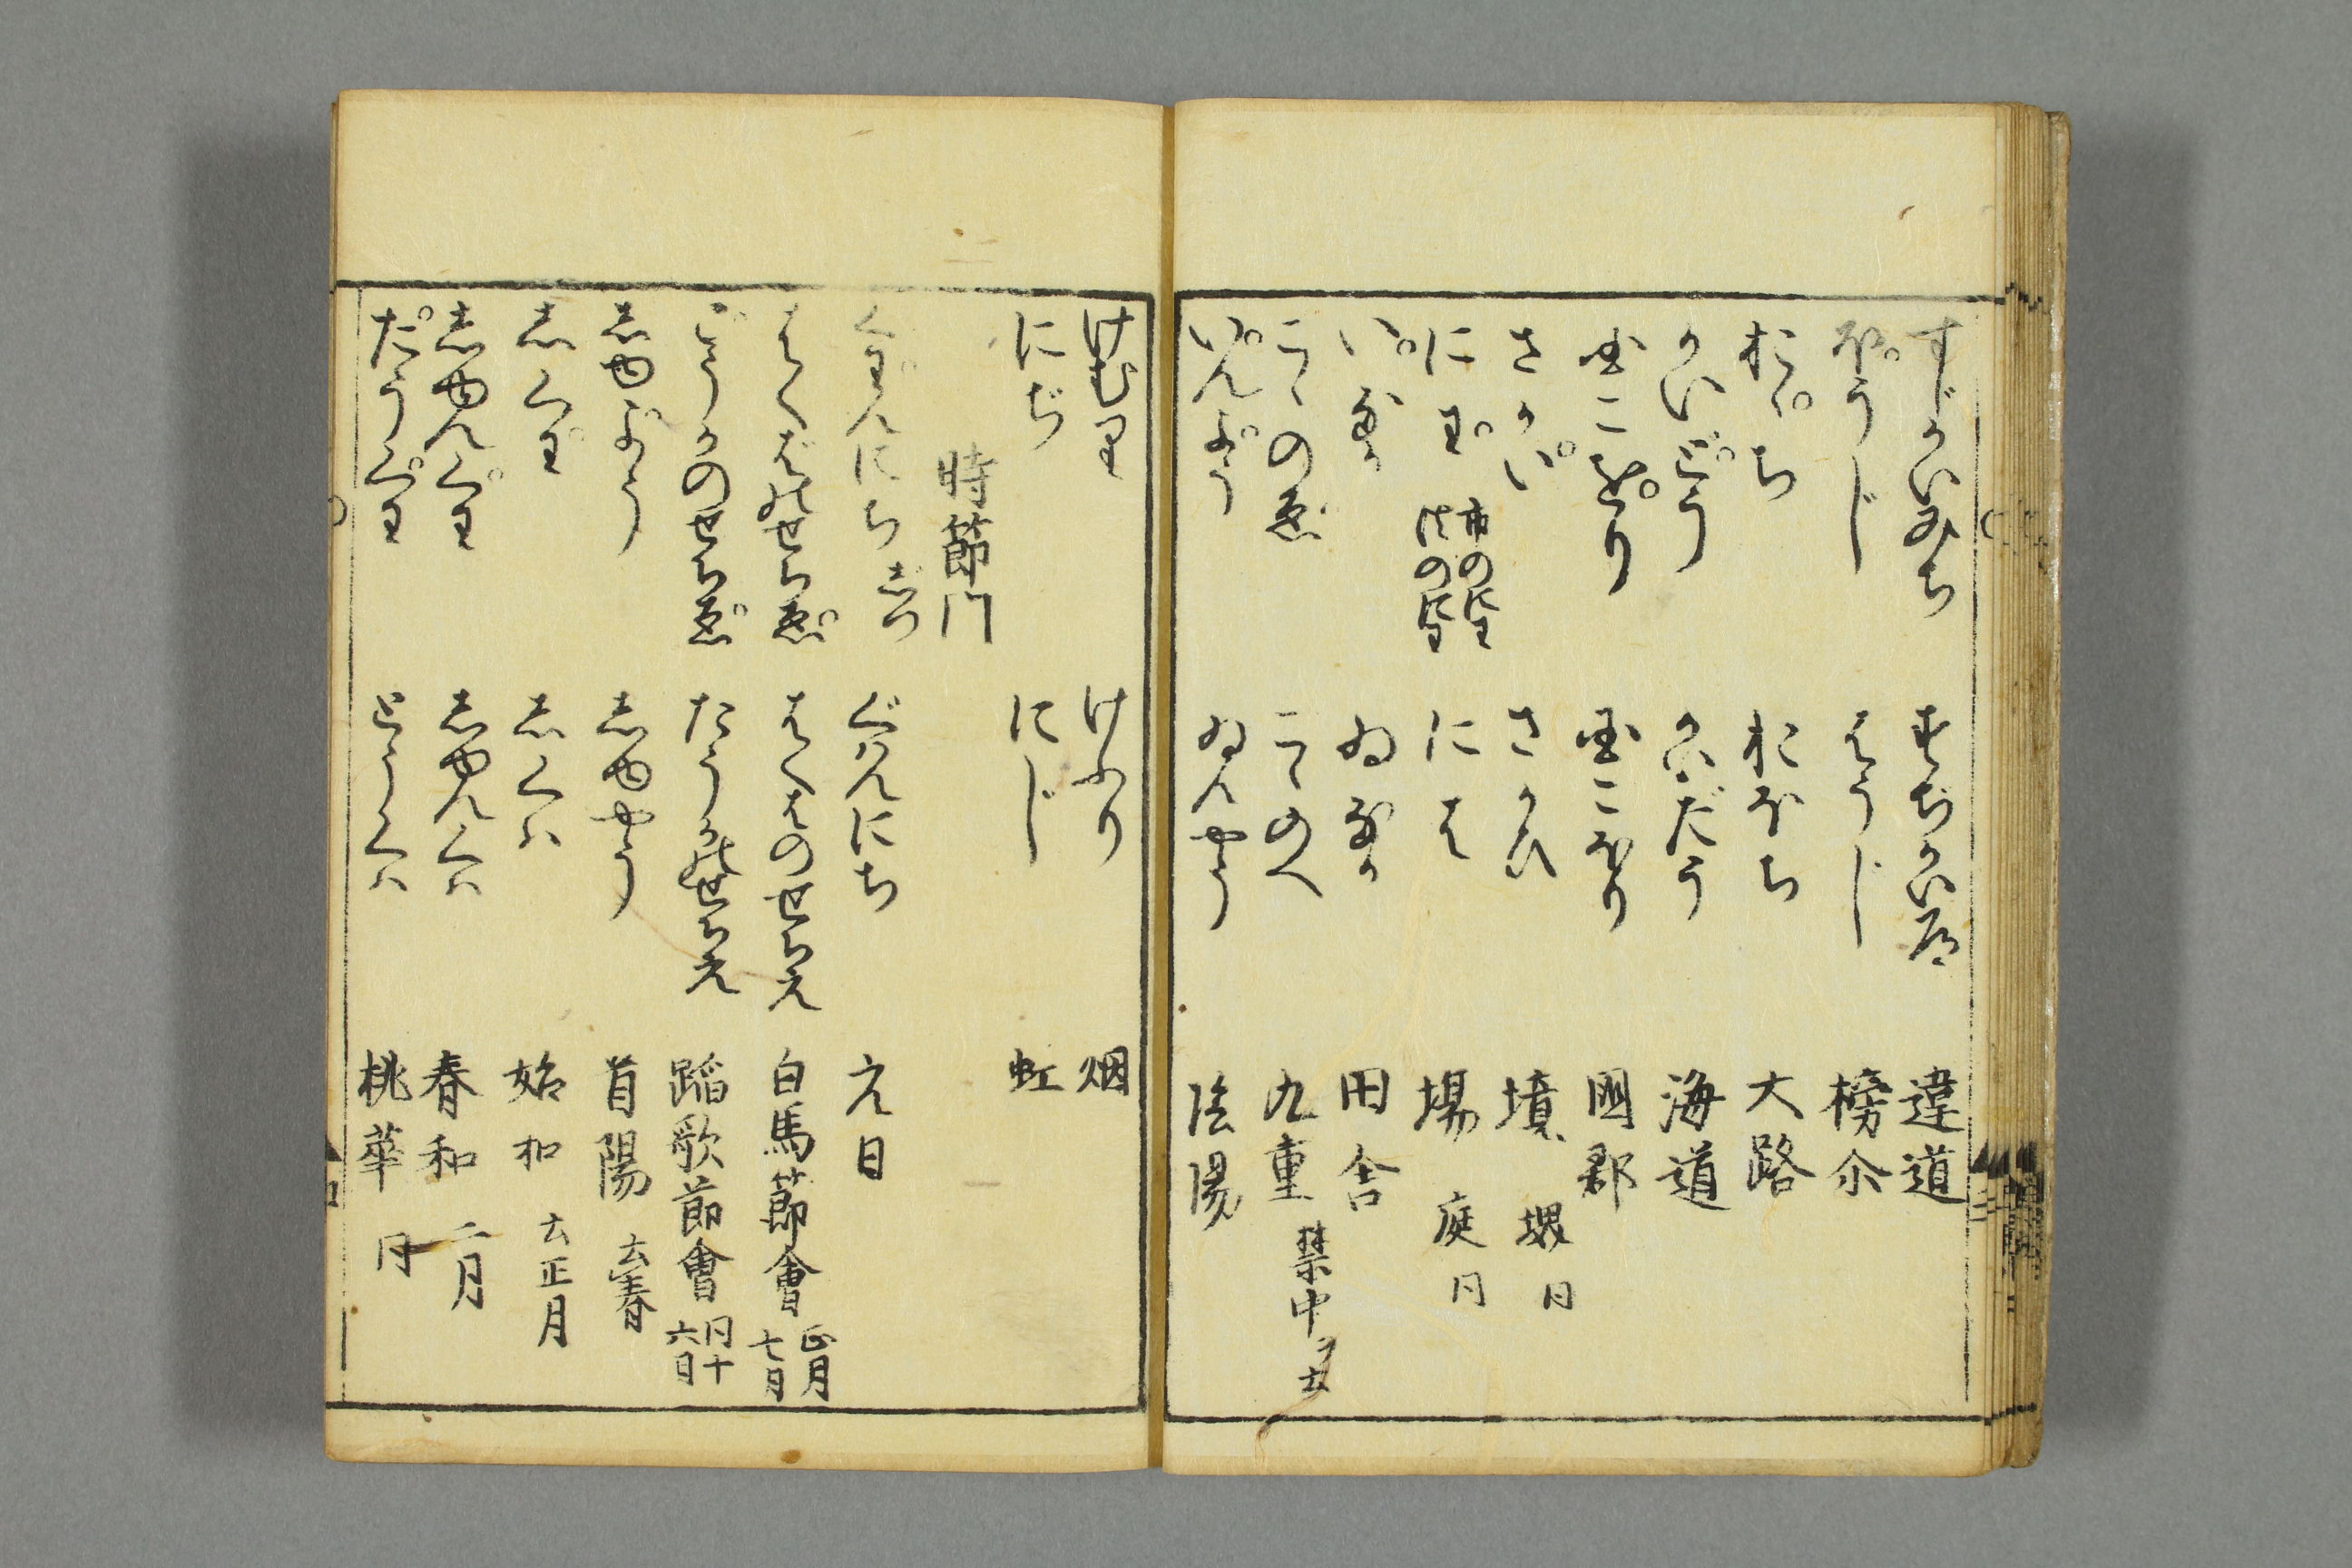 すじかいみち すぢかい道 違道
ほうじ はうじ 榜示
おゝち おほち 大路
かいどう かいだう 海道
くにこをり くにこほり 國郡
さかい さかひ 墳 堺同
にわ には 場 庭同
いなか ゐなか 田舎
こゝのゑ こゝのへ 九重 禁中ヲ云
いんよう ゐんやう 陰陽
けむり けふり 烟
にぢ にじ 虹
時節門
ぐわんにち ぐハんにち 元日
はくばのせちゑ はくはのせちえ 白馬節會 正月七日
どうかのせちゑ たうかのせちえ 踏歌節會 同十六日
しゆよう しゆやう 首陽 云春
しくわ しくハ 始和 云正月
しゆんくわ しゆんくハ 春和 二月
たうくわ とうくハ 桃華 同